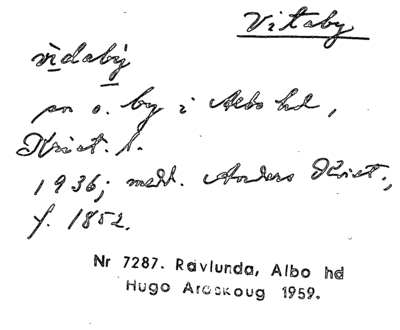 Vitaby
vìdabý
sn o. by i Albo hd,
Krist. l.
1936; medd. Anders Krist.,
f. 1852.
Nr 7287. Ravlunda, Albo hd
Hugo Areskoug 1959.